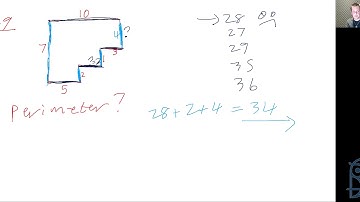 9
10
7
4 ?
3
1
2
5
Perimeter?
→ 28
27
29
35
36
28+2+4 = 34